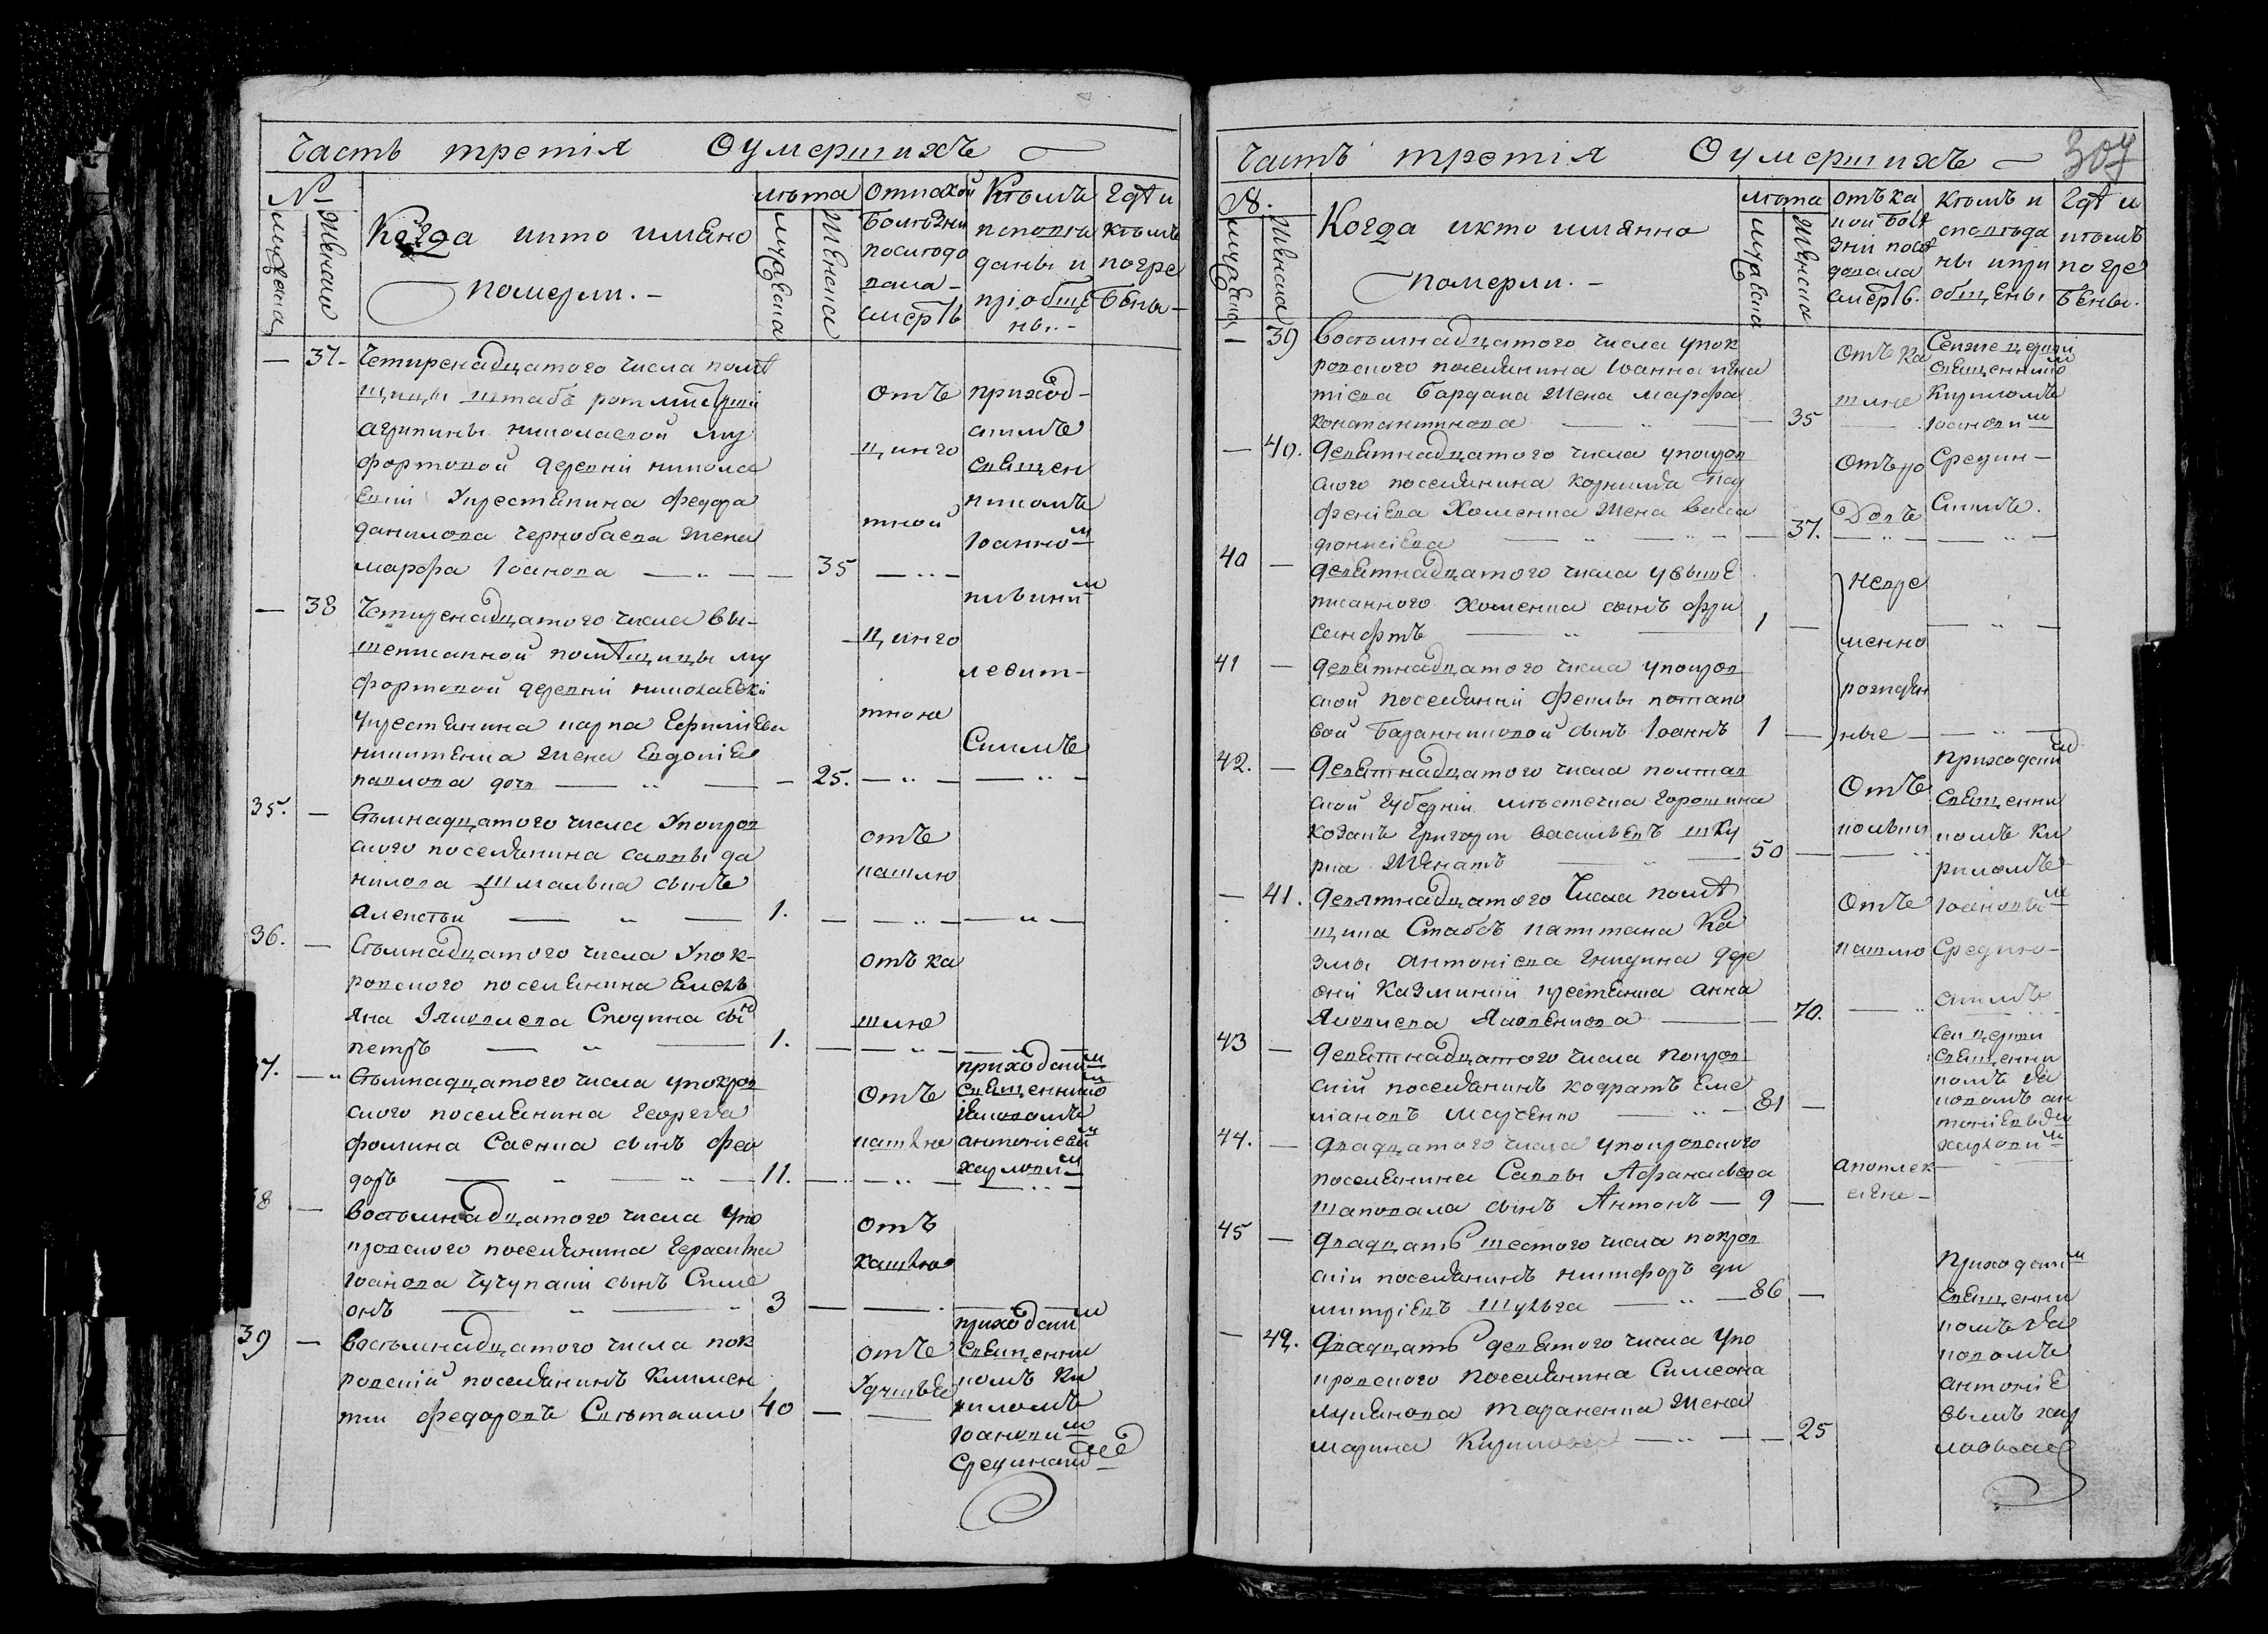 Часть третія Оумершихъ
№
мужеска
женска
Когда икто имянно
померли.-
лѣта
мужеска
женска
Откакой
болѣзни
послѣдо
вала
смерть
Кѣмъ
исповѣ
даны и
пріобще
ны.-
Гдѣ и
кѣмъ
погре
бены-
— 37. Четиренадцатого числа помѣ
щицы штабъ ротмистрши
агрипины николаевой му
фортовой деревни никола
евки Укрестянина федора
данилова чернобаева жена
марфа Іоанова — „ — — 35
отъ
цинго
тной
— „ —
приход-
скимъ
священ
никомъ
Іоанном
— 38 Четиренадцатого числа вы-
шеписанной помѣщицы му
фортовой деревни николаевки
Укрестянина карпа Ефиміева
никитенка жена Евдокіе
павлова дочь — „ — — 25.
цинго
тною
— „ —
левит-
Скимъ
— „ —
35. — Сѣмнадцатого числа Упокров
ского поселянина саввы да
нилова шмалька сынъ
алексѣй — „ — 1. —
отъ
кашлю
— „ —
— „ —
36. — Сѣмнадцатого числа Упок-
ровского поселянина Емелъ
яна Яковлева Сподина сынъ
петръ — „ — 1. —
отъ ка
шлю
— „ —
— „ —
37. — Сѣмнадцатого числа упокров
ского поселянина Георгія
фомина Саенка сынъ Фео
доръ — „ — „ — 11. —
отъ
кашлю
— „ —
приходским
священнико
Іаковомъ
антоніевим
харловим
— „ —
38 — Восѣмнадцатого числа Упо
кровского поселянина Герасима
Іоанова Чучупаки сынъ Симе
онъ — „ — „ 3 —
отъ
кашлю
39 — Восѣмнадцатого числа пок
ровскій поселянинъ Климен
тій федоровъ Свѣтайло 40 —
отъ
Удушья
приходским
Священни
комъ Ки
риломъ
Іоановим
Срединским
Часть третія Оумершихъ 307
№.
мужеска
женска
Когда икто имянно
померли.-
лѣта
мужеска
женска
отъ ка
кой болѣ
зни послѣ
довала
смерть.
кѣмъ и
споведа
ны ипри
общены
Гдѣ и
кѣмъ
погре
бены.
— 39 Восѣмнадцатого числа упок
ровского поселянина Іоанна игна
тіева Бардака жена марфа
константинова — „ — — 35
отъ ка
шлю
Священнико
Кириломъ
Іоановим
— 40. Девятнадцатого числа упокров
ского поселянина корнилія Пар
феніева Хоменка жена васса
фонисіева — „ — „ — 37.
отъ ро
довъ
— „ —
Средин-
Скимъ.
— „ —
40 — Девятнадцатого числа Увыше
писанного хоменка сынъ фри
санфтъ — „ — 1 —
Непре
менно
— „ —
41 — Девятнадцатого числа упокров
ской поселянки феклы потапо
вой Баранниковой сынъ Іоаннъ 1 —
рожден
ные
— „ —
42. — Девятнадцатого числа полтав
ской губерніи мѣстечка горошина
козакъ Григорій Васильевъ шку
рка Женатъ — „ — 50 —
отъ
кольки
приходским
священни
комъ Ки
риломъ
— 41. Девятнадцатого Числа помѣ
щика Стабсъ капитана Ка
змы антоніева гнидина дере
вни Казминки крестянка анна
Яковлева Яковенкова — — 70.
отъ
кашлю
Іоановым
Средин-
скимъ
43 — Девятнадцатого числа покров
скій поселянинъ кодратъ Еме
ліановъ Маченко — „ — 81 —
священни
комъ Іа
ковомъ ан
тоніевым
харловим
44. — Двадцатого числа упокровского
поселянина Саввы Афанасьева
шаповала сынъ Антонъ — 9 —
апоплек
сіею —
45 — Двадцать шестого числа покров
скій поселянинъ никифоръ ди
митріевъ шульга — „ — 86 —
— 42. Двадцать девятого числа Упо
кровского поселянина Симеона
лукянова тараненка жена
марина Кирилова — „ — — 25
приходским
священни
комъ Іа
ковомъ
антоніе
вымъ хар
ловым